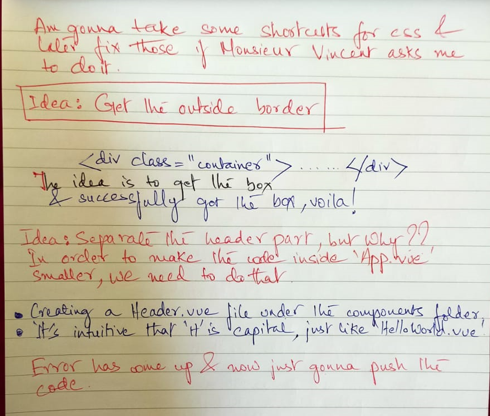 Am gonna take some shortcuts for css &
later fix those if Monsieur Vincent asks me
to do it.
Idea: Get the outside border
<div class="container"> ...... </div>
The idea is to get the box
& successfully got the box, voila!
Idea: Separate the header part, but why??
In order to make the code inside 'App.vue'
smaller, we need to do that.
• Creating a Header.vue file under the components folder,
• It's intuitive that 'H' is capital, just like HelloWorld.vue
Error has come up & now just gonna push the
code.